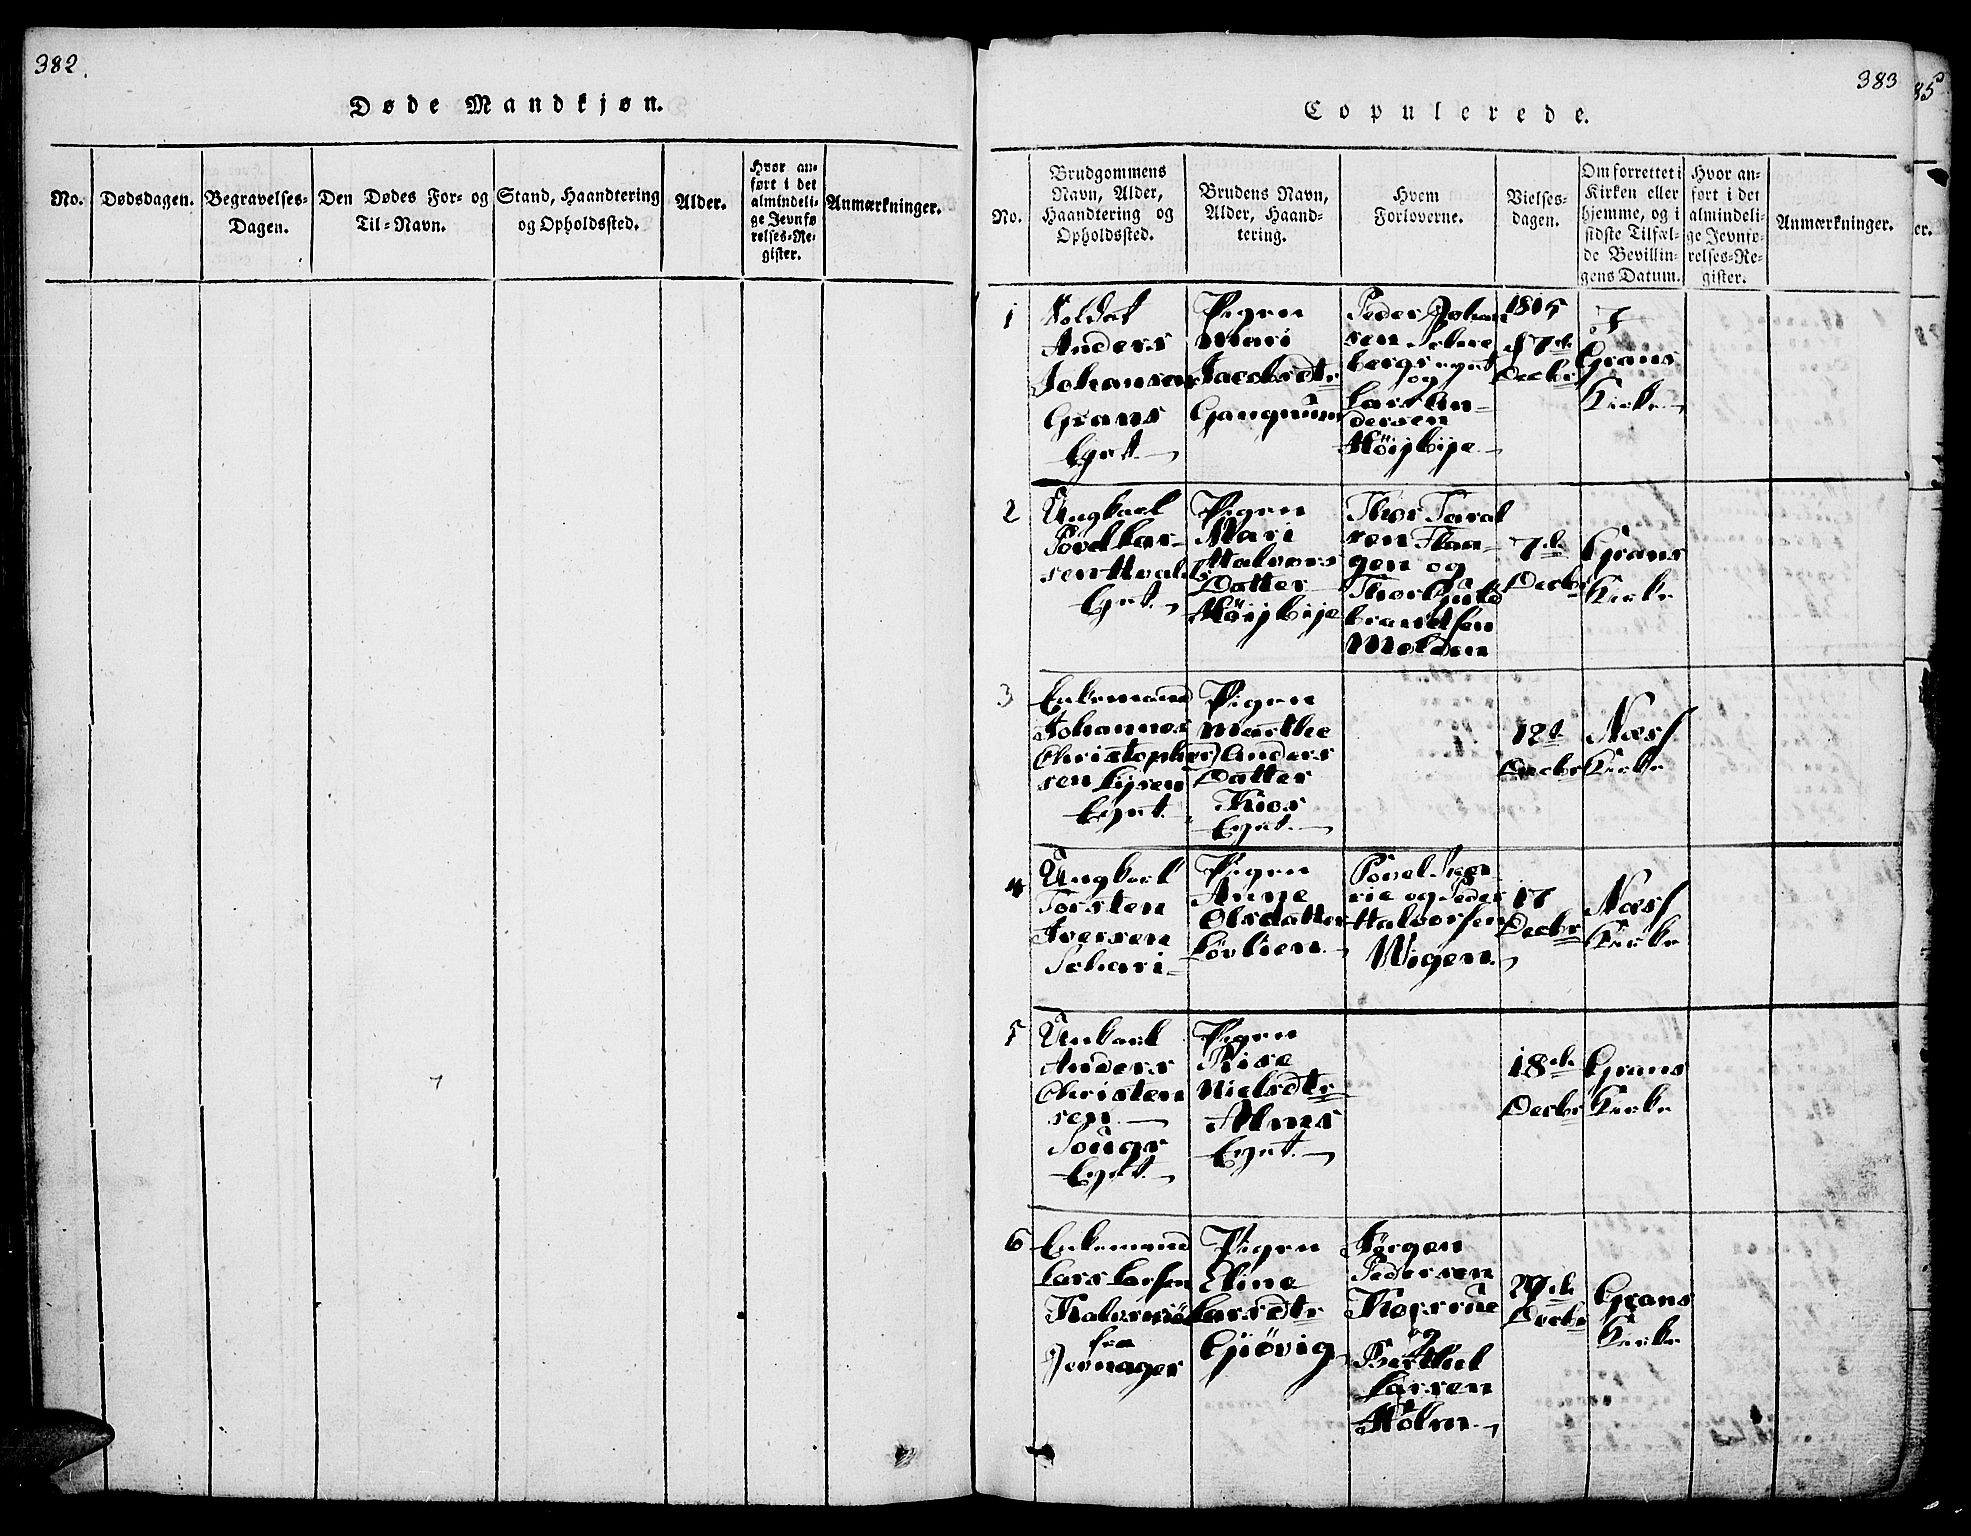 382.
Døde Mandkjøn.
No.
Dødsdagen.
Begravelses-
Dagen.
Den Dødes For- og
Til-Navn.
Stand, Haandtering
og Opholdssted.
Alder.
Hvor an-
ført i det
almindeli-
ge Jevnfø
relses-Re-
gister.
Anmærkninger.
383
Copulerede.
No.
Brudgommens
Navn, Alder,
Haandtering og
Opholdssted.
Brudens Navn,
Alder, Haand-
tering.
Hvem
Forloverne.
Vielses-
dagen.
Om forrettet i
Kirken eller
hjemme, og i
sidste Tilfæl-
de Bevillin-
gens Datum.
Hvor an-
ført i det
almindeli-
ge Jevnfø-
relses-Re-
gister.
Anmærkninger.
85
er.
1
Soldat
Anders
Johansen
Grans
Eyet
Pigen
Mari
Jacobsdtr
Gangnum
Peder Johan
sen
bergs eyet
og
Lars An-
dersen
Höijbÿe
1815
Decbr
J
Grans
Kirke
2
Ungkarl
Povel Lar-
sen Hvals
Eyet
Pigen
Mari
Halvors
Datter
Höijbije
Thor Taral
sen Haa-
gen og
Thor Guld
brandsen
Molden
7de
Decbr
Grans
Kirke
3
Enkemand
Johannes
Christopher
sen Lysen
Eyet
Pigen
Marthe
Anders
Datter
Kios
Eyet
12t
Decbr
Næss
Kirke
4
Ungkarl
Torsten
Iversen
Schari
Pigen
Anne
Olsdatter
Lövlien
Povel
rie og Peder
Halvorsen
Wigen
17
Decbr
Næss
Kirke
5
Unkarl
Anders
Christen
sen
Sougs
Eyet
Pigen
Nielsdtr
Alms
Eyet
18de
Decbr
Grans
Kirke
6
Enkemand
Lars Larsen
fra
Jevnager
Pigen
Eline
Larsdtr
Gjövig
Jörgen
Pedersen
og
Berthel
Larsen
Holm
Decbr
Grans
Kirke